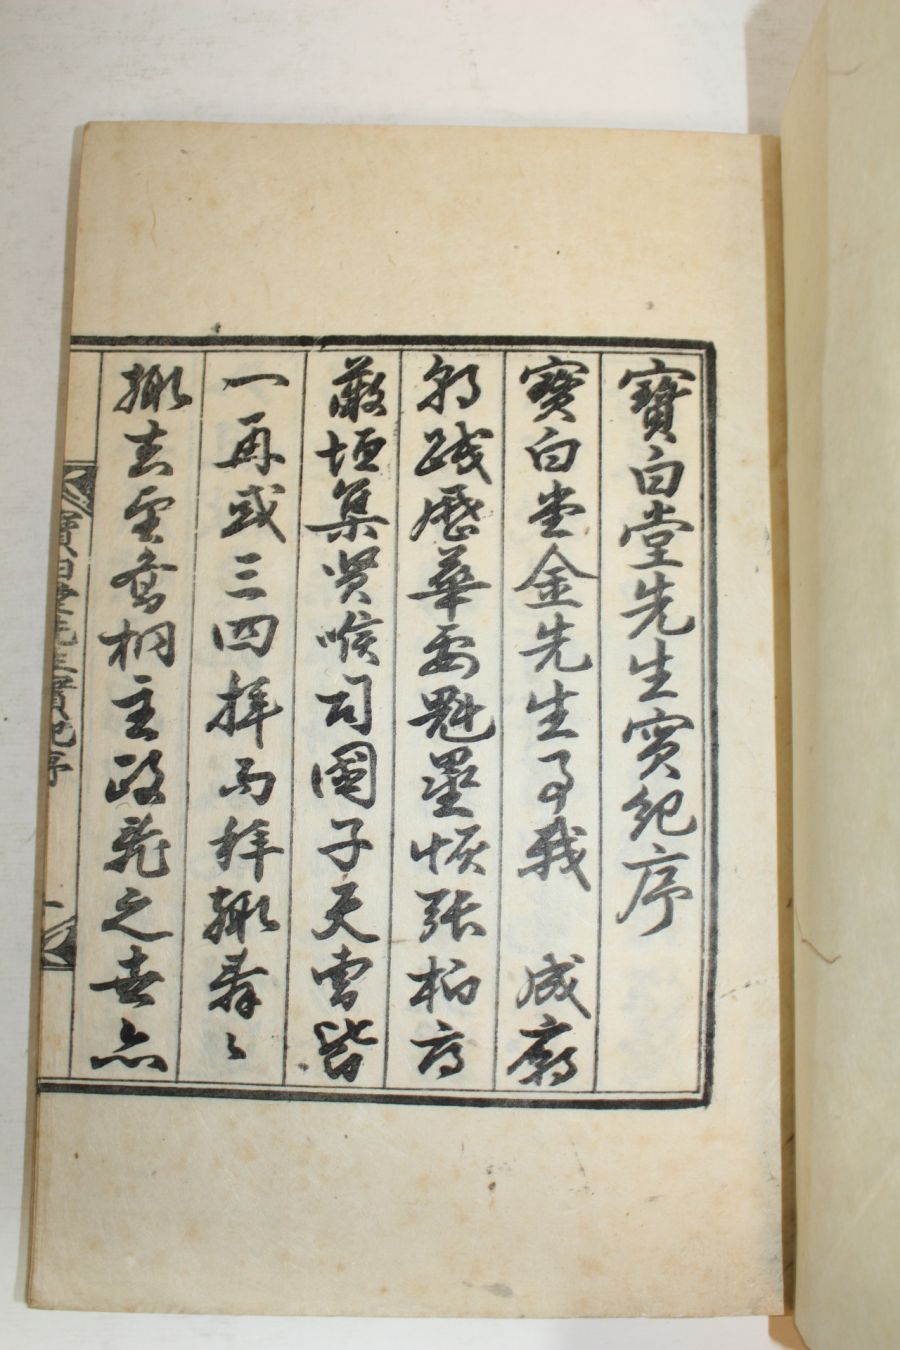 寶白堂先生實紀序
寶白堂金先生事我 成廟
朝踐歷華要魁壘恢張柏府
薇垣集賢喉司國子天曹皆
一再或三四拜而拜輒辭〻
輒去望喬桐主政嵬之世亦
寶白堂先生實紀序
一